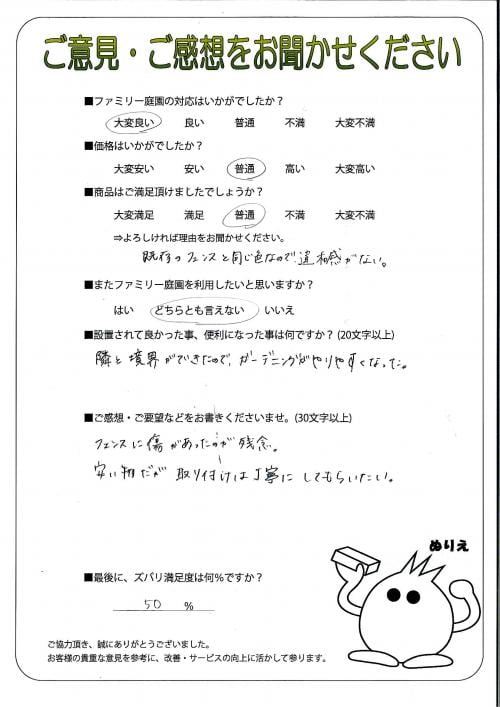 ご意見・ご感想をお聞かせください
■ファミリー庭園の対応はいかがでしたか？
大変良い 良い 普通 不満 大変不満
■価格はいかがでしたか？
大変安い 安い 普通 高い 大変高い
■商品はご満足頂けましたでしょうか？
大変満足 満足 普通 不満 大変不満
⇒よろしければ理由をお聞かせください。
既存のフェンスと同じ色なので違和感がない。
■またファミリー庭園を利用したいと思いますか？
はい どちらとも言えない いいえ
■設置されて良かった事、便利になった事は何ですか？(20文字以上)
隣と境界ができたので、ガーデニングがやりやすくなった。
■ご感想・ご要望などをお書きくださいませ。(30文字以上)
フェンスに傷があったのが残念。
安い物だが取り付けは丁寧にしてもらいたい。
ぬりえ
■最後に、ズバリ満足度は何％ですか？
50 ％
ご協力頂き、誠にありがとうございました。
お客様の貴重な意見を参考に、改善・サービスの向上に活かして参ります。